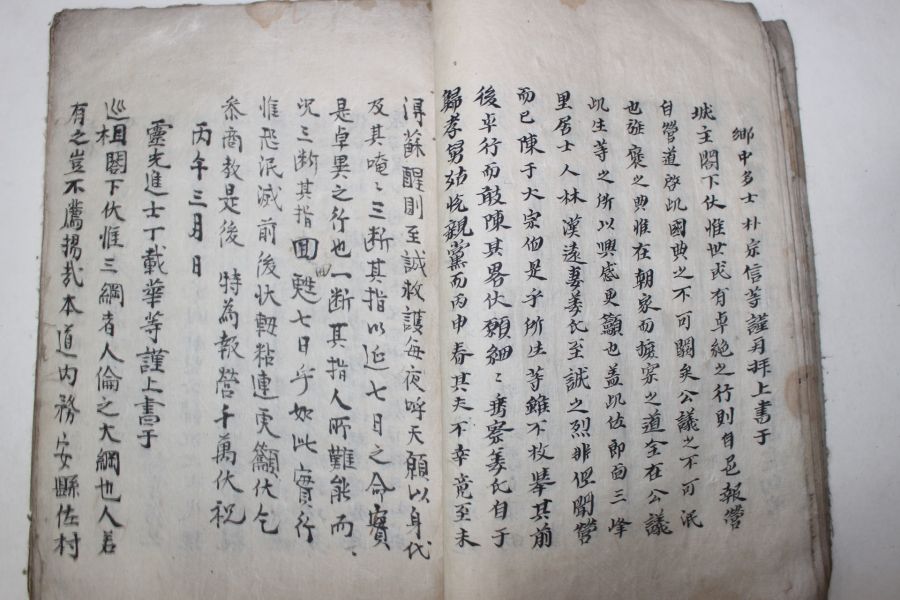 鄕中多士朴宗信等謹再拜上書于
城主閤下伏惟世或有卓絶之行則自邑報營
自營道啓此國典之不可闕矣公議之不可泯
也旌褒之典惟在朝家而採察之道全在公議
此生等之所以興感更籲也盖此佐卽面三峰
里居士人林漢遠妻姜氏至誠之烈非但聞營
而已陳于大宗伯是乎所生等雖不枚擧其前
後卓行而敢陳其畧伏願細〻垂察姜氏自于
歸孝舅姑悅親黨而丙申春其夫不幸竟至未
得蘇醒則至誠救護每夜呼天願以身代
及其唵〻三断其指以近七日之命實
是卓異之行也一断其指人所難能而
况三断其指回甦七日乎如此實行
惟恐泯滅前後狀輒粘連更籲伏乞
叅商敎是後 特為報營千萬伏祝
丙午三月日
靈光進士丁載華等謹上書于
巡相閤下伏惟三綱者人倫之大綱也人若
有之豈不薦揚哉本道內務安縣佐村